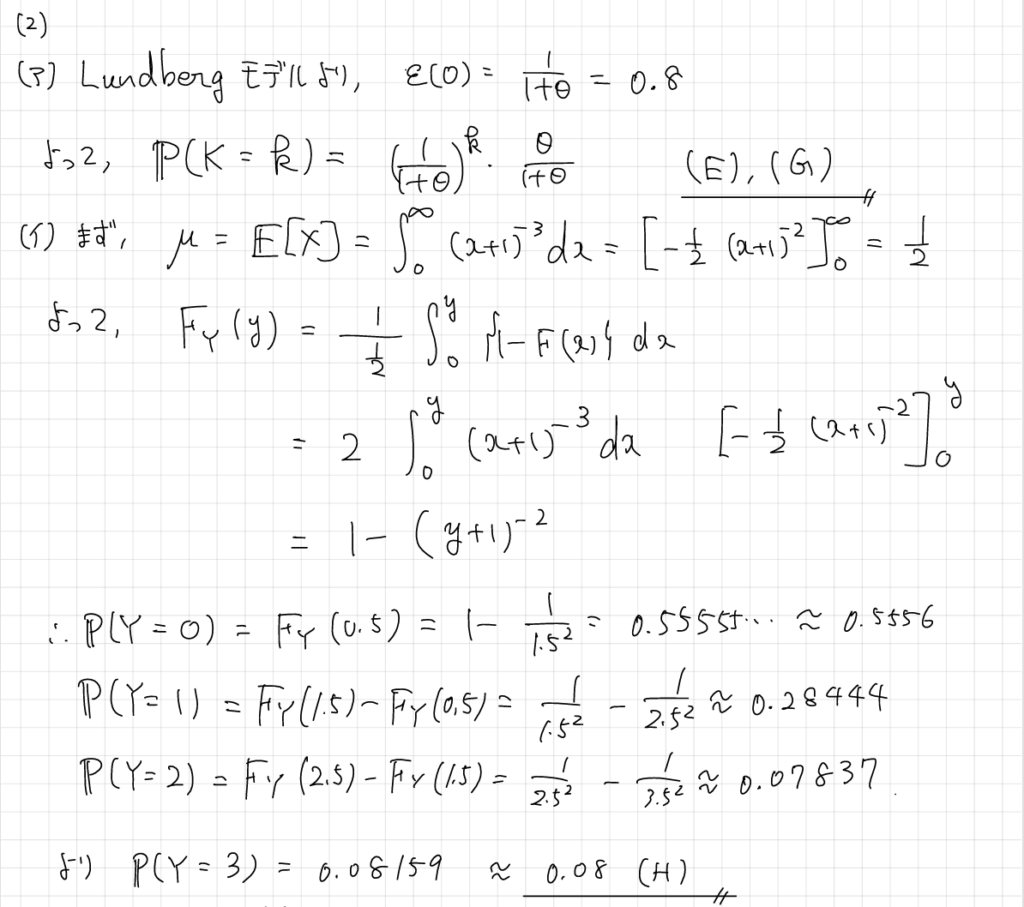 (2)
(ア) Lundberg モデルより, ε(0) = 1/(1+θ) = 0.8
よって, P(K = k) = (1/(1+θ))^k · θ/(1+θ) (E), (G)
(イ) まず, μ = E[X] = ∫_0^∞ (x+1)^{-3} dx = [-1/2 (x+1)^{-2}]_0^∞ = 1/2
よって, F_Y(y) = 1/(1/2) ∫_0^y {1-F(x)} dx
= 2 ∫_0^y (x+1)^{-3} dx [-1/2 (x+1)^{-2}]_0^y
= 1 - (y+1)^{-2}
∴ P(Y=0) = F_Y(0.5) = 1 - 1/1.5^2 = 0.55555... ≈ 0.5556
P(Y=1) = F_Y(1.5) - F_Y(0.5) = 1/1.5^2 - 1/2.5^2 ≈ 0.28444
P(Y=2) = F_Y(2.5) - F_Y(1.5) = 1/2.5^2 - 1/3.5^2 ≈ 0.07837.
より P(Y=3) = 0.08159 ≈ 0.08 (H)